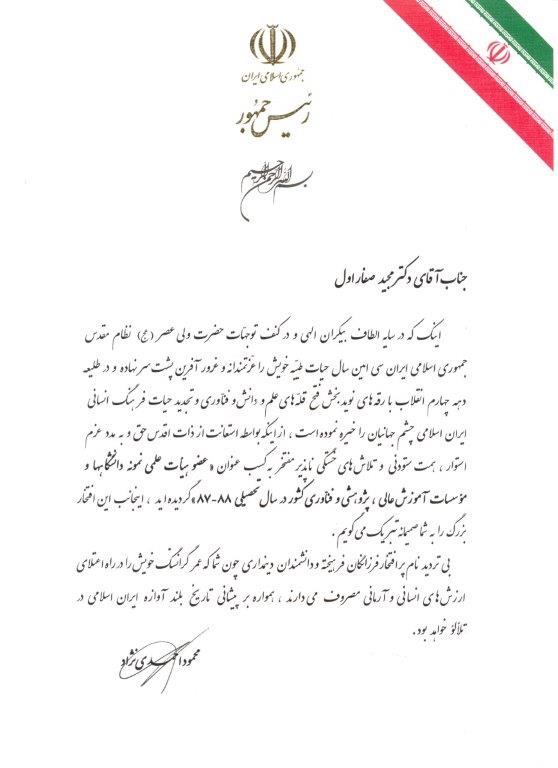 جمهوری اسلامی ایران
رئیس جمهور
بسم الله الرحمن الرحیم
جناب آقای دکتر مجید صفار اول
اینک که در سایه الطاف بیکران الهی و در کنف توجهات حضرت ولی عصر (عج) نظام مقدس
جمهوری اسلامی ایران سی امین سال حیات طیبه خویش را عزتمندانه و غرور آفرین پشت سر نهاده و در طلیعه
دهه چهارم انقلاب بارقه های نوید بخش فتح قله های علم و دانش و فناوری و تجدید حیات فرهنگ انسانی
ایران اسلامی چشم جهانیان را خیره نموده است ، از اینکه بواسطه استعانت از ذات اقدس حق و به مدد عزم
استوار ، همت ستودنی و تلاش های خستگی ناپذیر مفتخر به کسب عنوان « عضو هیأت علمی نمونه دانشگاهها و
مؤسسات آموزش عالی ، پژوهشی و فناوری کشور در سال تحصیلی ۸۸-۸۷» گردیده اید ، اینجانب این افتخار
بزرگ را به شما صمیمانه تبریک می گویم .
بی تردید نام پر افتخار فرزانگان فرهیخته و دانشمندان دینداری چون شما که عمر گرانسنگ خویش را در راه اعتلای
ارزش های انسانی و آرمانی مصروف می دارند ، همواره بر پیشانی تاریخ بلند آوازه ایران اسلامی در
تلألؤ خواهد بود.
محمود احمدی نژاد